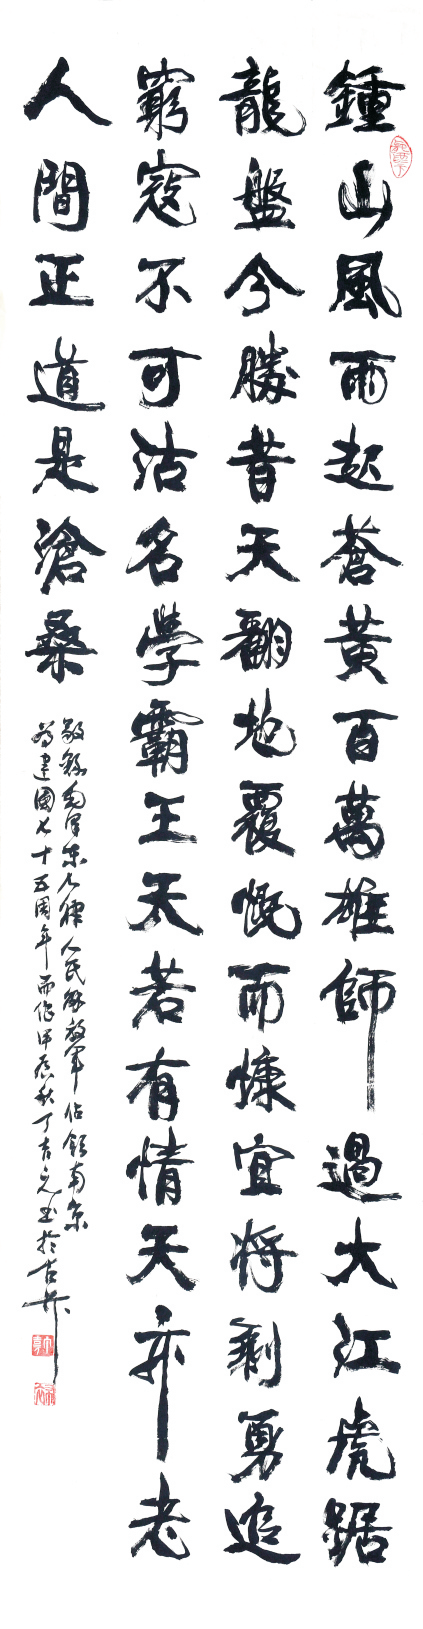 鍾山風雨起蒼黃百萬雄師過大江虎踞
龍盤今勝昔天翻地覆慨而慷宜将剩勇追
窮寇不可沽名學霸王天若有情天亦老
人間正道是滄桑
敬錄毛澤東七律人民解放軍佔領南京
為建國七十五周年而作甲辰秋丁吉元書於古